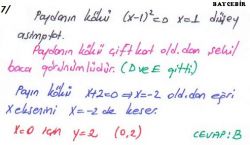 BAYCEBİR
7/
Paydanın kökü (x-1)²=0 x=1 düşey
asimptot.
Paydanın kökü çift kat old.dan şekil
baca görünümlüdür. (D ve E gitti)
Payın kökü x+2=0 ⇒ x=-2 old.dan eğri
X eksenini x=-2 de keser.
x=0 için y=2 (0,2)
CEVAP: B